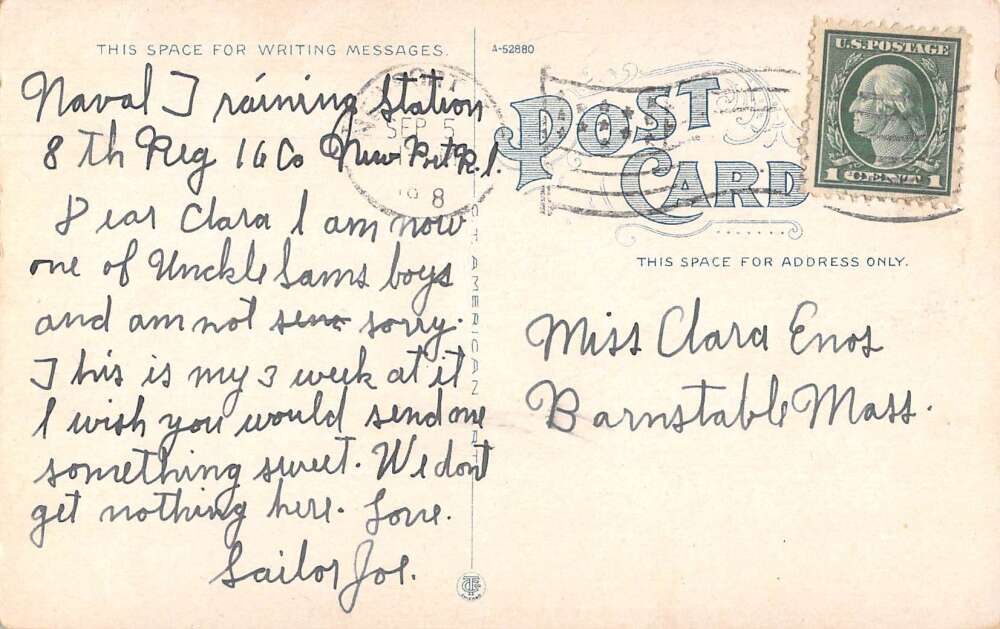 THIS SPACE FOR WRITING MESSAGES.
A-52880
Naval Training Station
8 th Reg 16 Co New Prt R.I.
Dear Clara I am now
one of Unckle Sams boys
and am not sorry.
This is my 3 week at it
I wish you would send me
something sweet. We dont
get nothing here. Love.
Sailor Joe.
SEP 5
POST
CARD
U.S. POSTAGE
1 CENT 1
THIS SPACE FOR ADDRESS ONLY.
Miss Clara Enos
Barnstable Mass.
C.T. AMERICAN ART